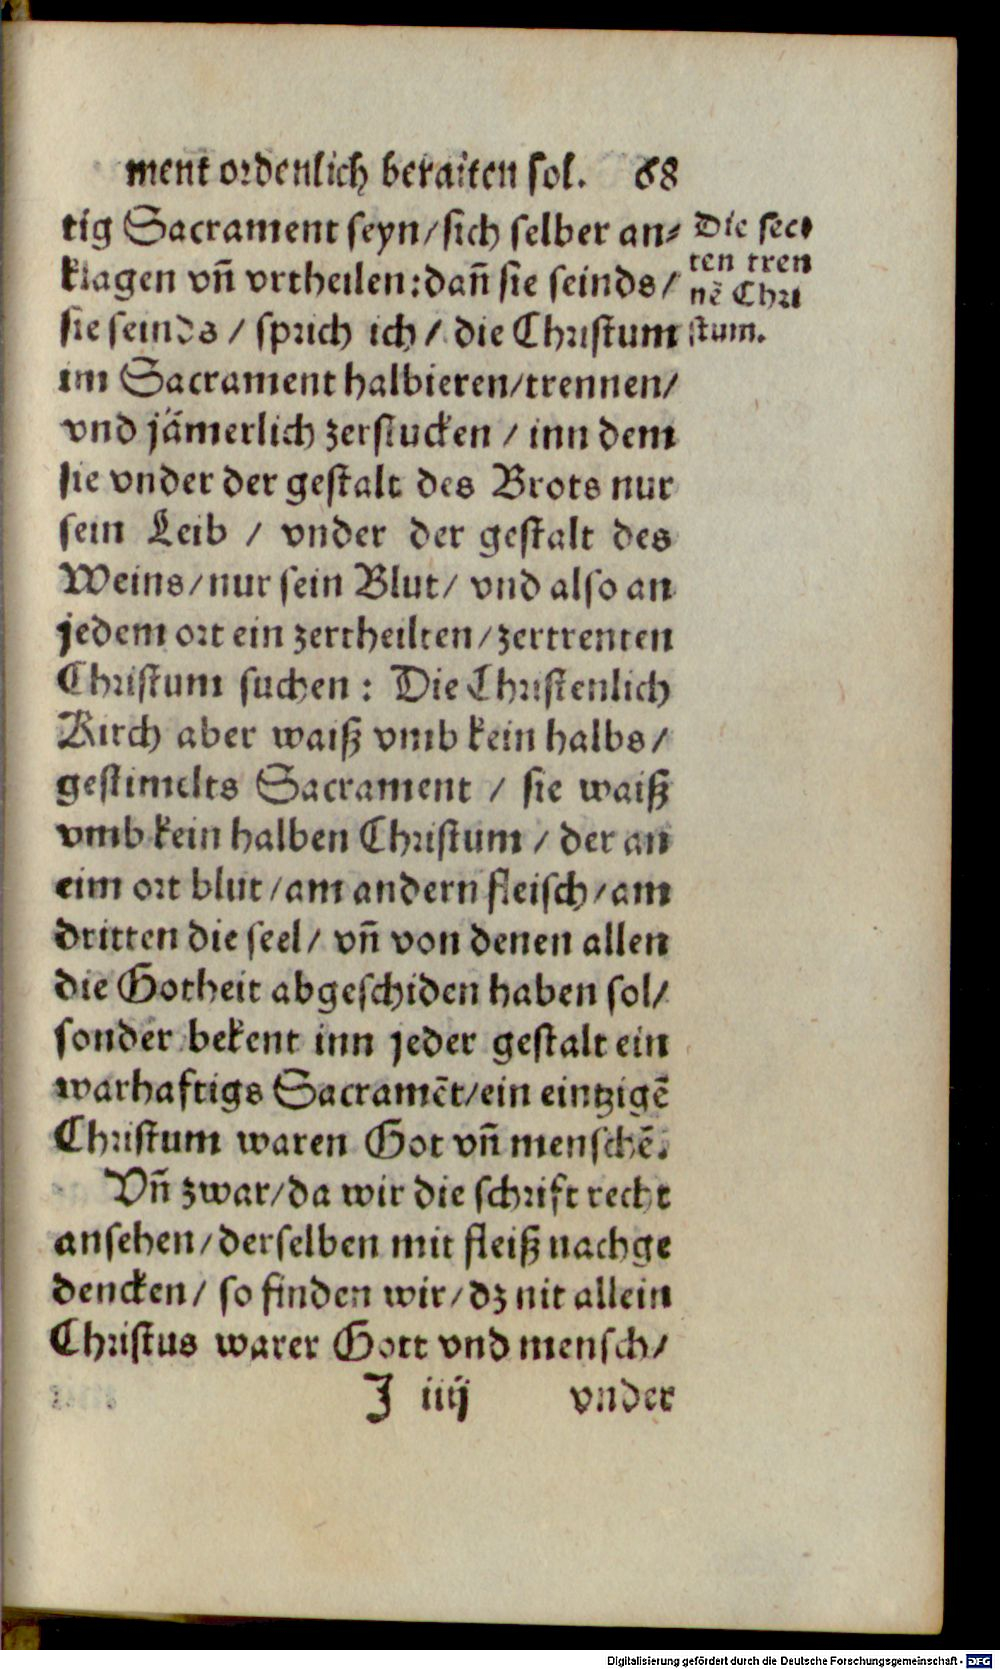 ment ordenlich beraiten sol. 68
tig Sacrament seyn/sich selber an⸗
klagen vñ vrtheilen:dañ sie seinds/
sie seinds / sprich ich / die Christum
im Sacrament halbieren/trennen/
vnd jämerlich zerstucken / inn dem
sie vnder der gestalt des Brots nur
sein Leib / vnder der gestalt des
Weins/nur sein Blut/ vnd also an
jedem ort ein zertheilten/zertrenten
Christum suchen : Die Christenlich
Kirch aber waiß vmb kein halbs/
gestimelts Sacrament / sie waiß
vmb kein halben Christum / der an
eim ort blut/am andern fleisch/am
dritten die seel/ vñ von denen allen
die Gotheit abgeschiden haben sol/
sonder bekent inn jeder gestalt ein
warhaftigs Sacramēt/ein eintzigē
Christum waren Got vñ menschē.
Vñ zwar/da wir die schrift recht
ansehen/derselben mit fleiß nachge
dencken/ so finden wir/dz nit allein
Christus warer Gott vnd mensch/
J iiij vnder
Die sec⸗
ten tren
nē Chri
stum.
Digitalisierung gefördert durch die Deutsche Forschungsgemeinschaft - DFG